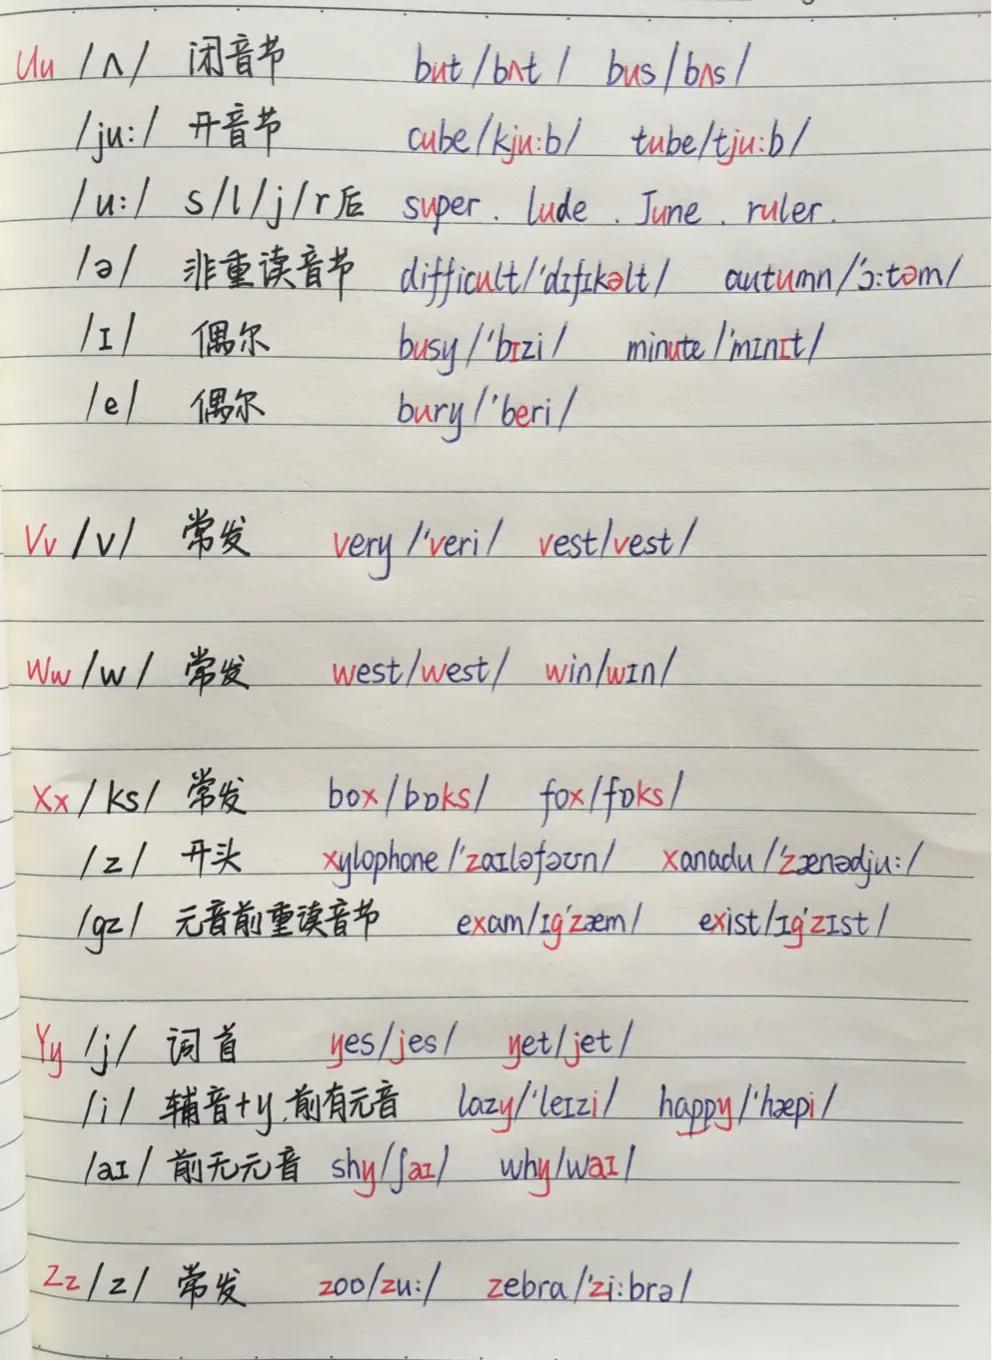 Uu /ʌ/ 闭音节 but /bʌt/ bus /bʌs/
/ju:/ 开音节 cube /kju:b/ tube /tju:b/
/u:/ s/l/j/r后 super. lude. June. ruler.
/ə/ 非重读音节 difficult /'dɪfɪkəlt/ autumn /'ɔ:təm/
/ɪ/ 偶尔 busy /'bɪzi/ minute /'mɪnɪt/
/e/ 偶尔 bury /'beri/
Vv /v/ 常发 very /'veri/ vest /vest/
Ww /w/ 常发 west /west/ win /wɪn/
Xx /ks/ 常发 box /bɒks/ fox /fɒks/
/z/ 开头 xylophone /'zaɪləfəʊn/ xanadu /'zænədju:/
/gz/ 元音前重读音节 exam /ɪg'zæm/ exist /ɪg'zɪst/
Yy /j/ 词首 yes /jes/ yet /jet/
/i/ 辅音+y.前有元音 lazy /'leɪzi/ happy /'hæpi/
/aɪ/ 前无元音 shy /ʃaɪ/ why /waɪ/
Zz /z/ 常发 zoo /zu:/ zebra /'zi:brə/